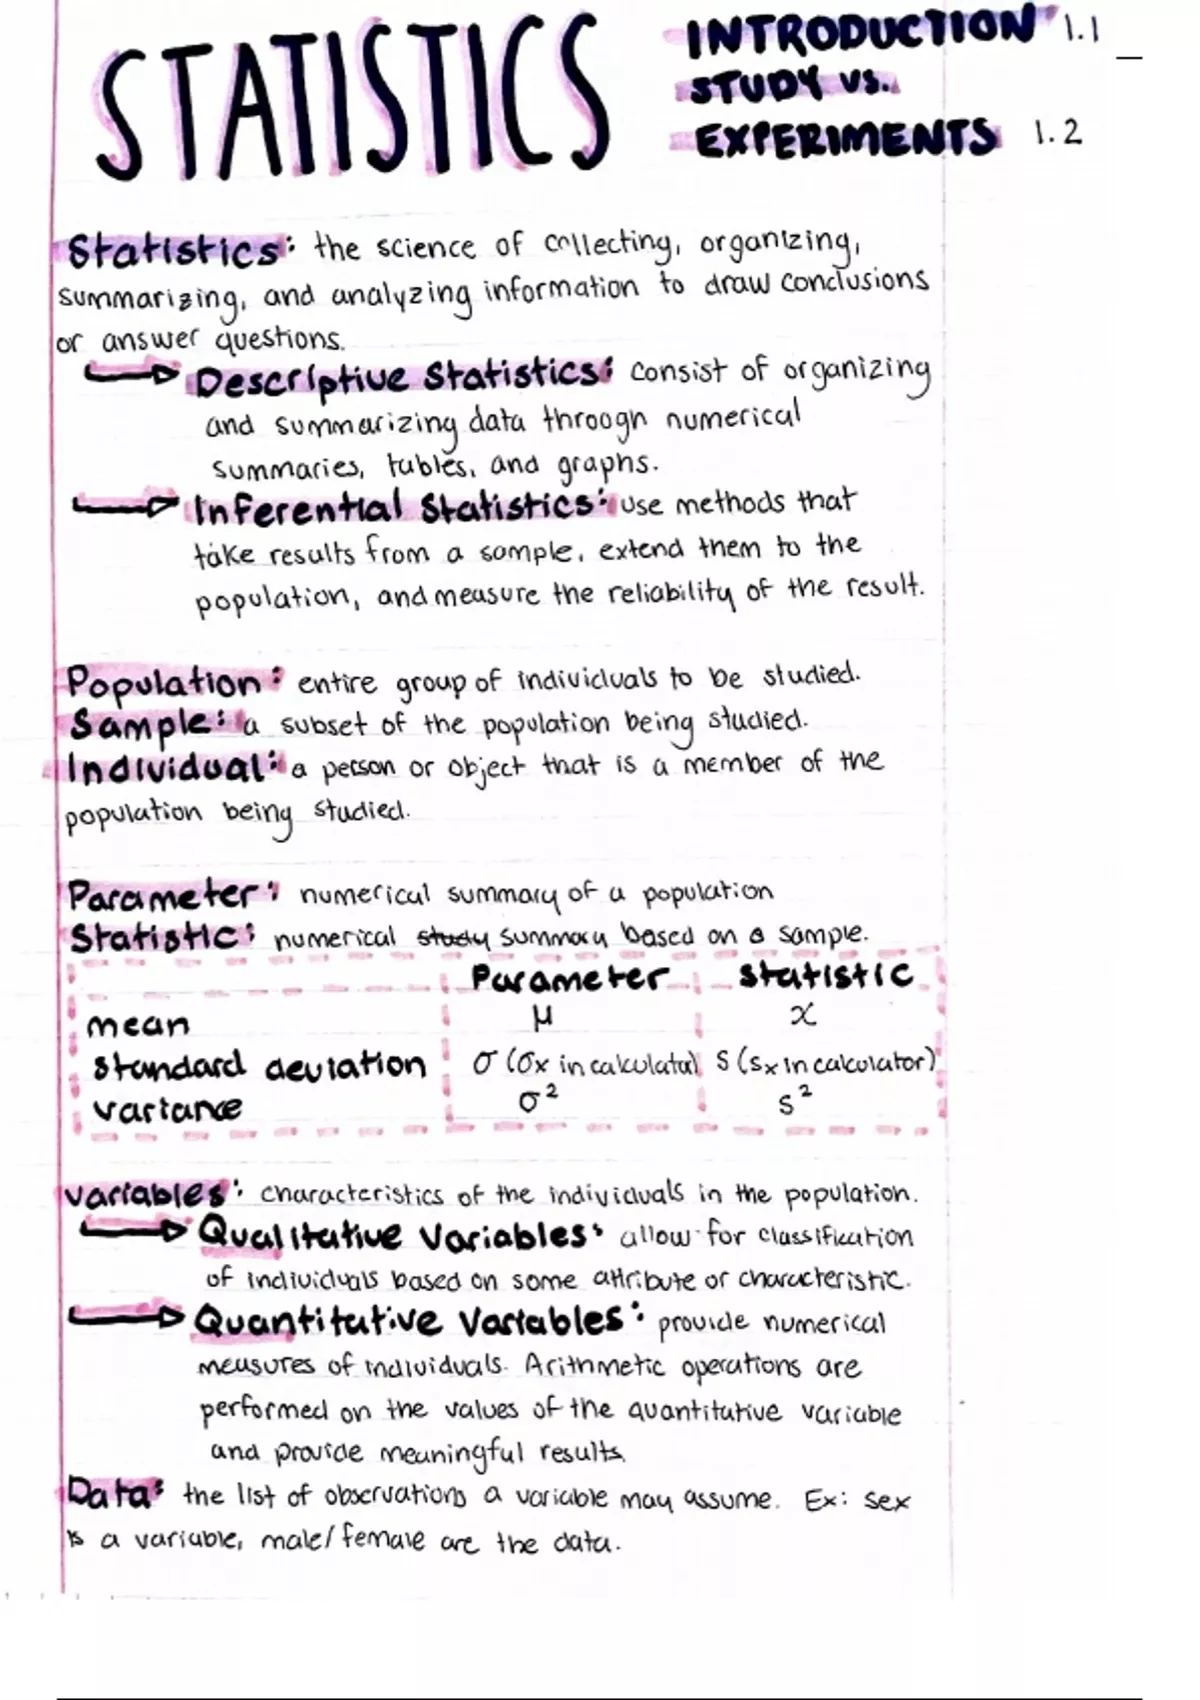 STATISTICS
INTRODUCTION 1.1
STUDY VS.
EXPERIMENTS 1.2
Statistics: the science of collecting, organizing,
summarizing, and analyzing information to draw conclusions
or answer questions.
Descriptive Statistics: consist of organizing
and summarizing data through numerical
summaries, tables, and graphs.
Inferential Statistics: use methods that
take results from a sample, extend them to the
population, and measure the reliability of the result.
Population: entire group of individuals to be studied.
Sample: a subset of the population being studied.
Individual: a person or object that is a member of the
population being studied.
Parameter: numerical summary of a population
Statistic: numerical study summary based on a sample.
Parameter statistic
mean μ x
standard deviation σ (σx in calculator) S (Sx in calculator)
variance σ² S²
variables: characteristics of the individuals in the population.
Qualitative Variables: allow for classification
of individuals based on some attribute or characteristic.
Quantitative Variables: provide numerical
measures of individuals. Arithmetic operations are
performed on the values of the quantitative variable
and provide meaningful results.
Data: the list of observations a variable may assume. Ex: sex
is a variable, male/female are the data.